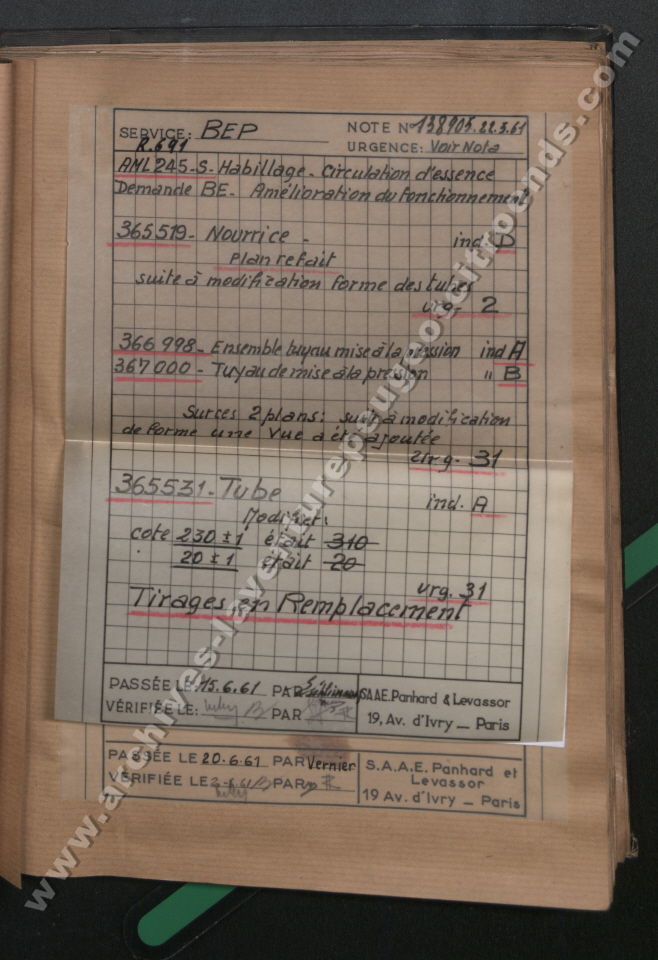 SERVICE: BEP
NOTE N° 138905.22.5.61
R.691
URGENCE: Voir Nota
AML 245-S- Habillage - Circulation d'essence
Demande BE - Amélioration du fonctionnement
365519 - Nourrice - ind D
Plan refait
suite à modification forme des tubes
urg. 2
366998 - Ensemble tuyau mise à la pression ind A
367000 - Tuyau de mise à la pression " B
Sur ces 2 plans: suite à modification
de forme une vue a été ajoutée
urg. 31
365531 - Tube ind. A
Modifier:
cote 230 ± 1 était 310
20 ± 1 était 20
urg. 31
Tirages en Remplacement
PASSÉE LE: 15.6.61 PAR
VÉRIFIÉE LE: PAR
S.A.A.E. Panhard & Levassor
19, Av. d'Ivry _ Paris
PASSÉE LE 20.6.61 PAR Vernier
VÉRIFIÉE LE PAR
S.A.A.E. Panhard et
Levassor
19 Av. d'Ivry _ Paris
www.archives-laventurepeugeotcitroends.com